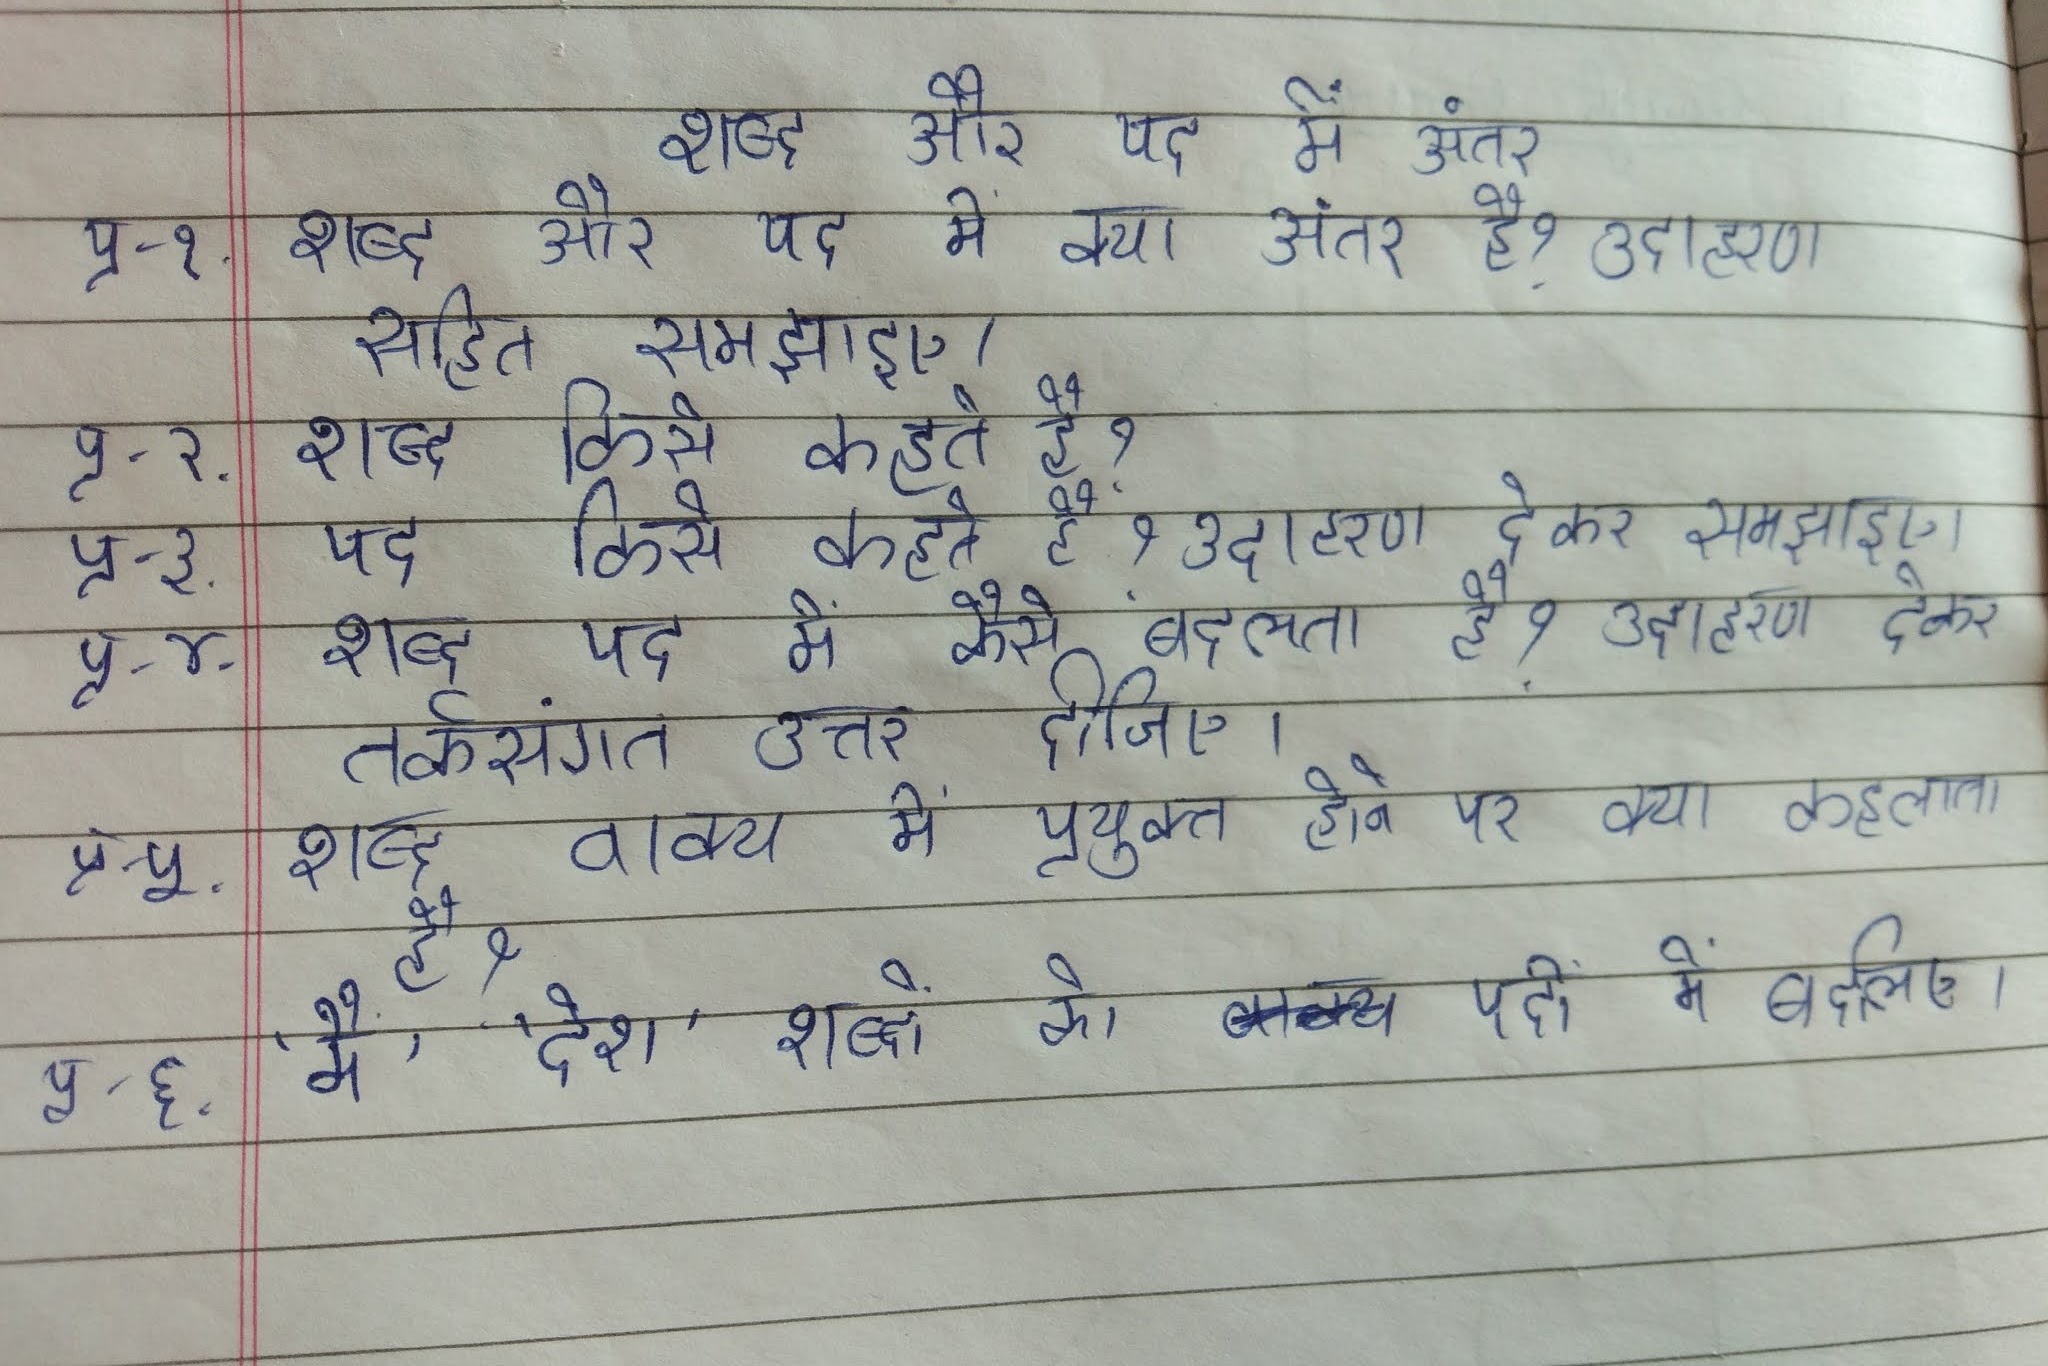 शब्द और पद में अंतर
प्र-१. शब्द और पद में क्या अंतर है? उदाहरण
सहित समझाइए।
प्र-२. शब्द किसे कहते हैं?
प्र-३. पद किसे कहते हैं? उदाहरण देकर समझाइए।
प्र-४. शब्द पद में कैसे बदलता है? उदाहरण देकर
तर्कसंगत उत्तर दीजिए।
प्र-५. शब्द वाक्य में प्रयुक्त होने पर क्या कहलाता
है?
प्र-६. 'मैं' 'देश' शब्दों को पदों में बदलिए।